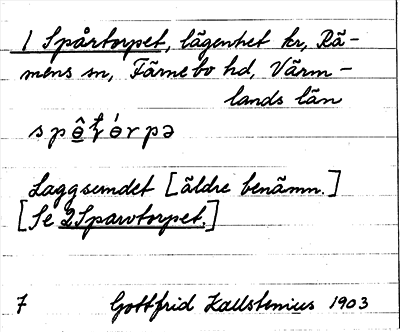 1 Spårtorpet, lägenhet kr, Rä-
mens sn, Färnebo hd, Värm-
lands län
Laggsundet [äldre benämn.]
[Se 2 Sparvtorpet.]
7 Gottfrid Kallstenius 1903